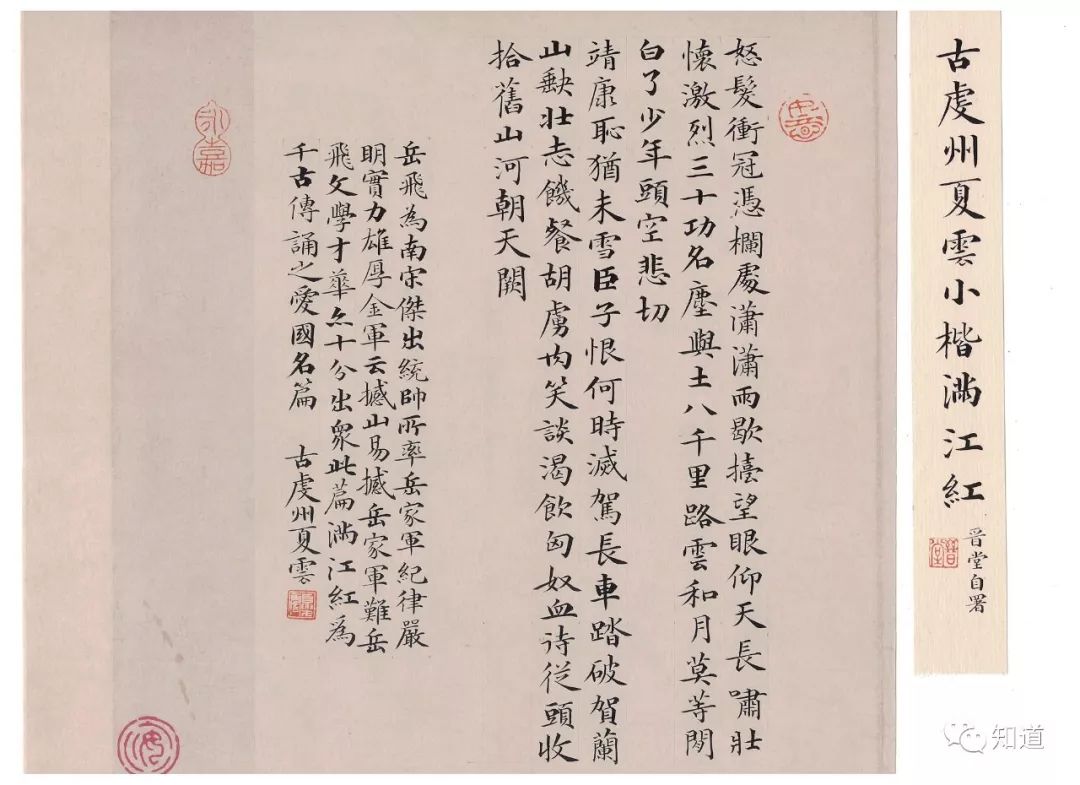 古虔州夏雲小楷滿江紅
晉堂自署
怒髮衝冠憑欄處瀟瀟雨歇擡望眼仰天長嘯壯
懷激烈三十功名塵與土八千里路雲和月莫等閒
白了少年頭空悲切
靖康恥猶未雪臣子恨何時滅駕長車踏破賀蘭
山缺壯志饑餐胡虜肉笑談渴飲匈奴血待從頭收
拾舊山河朝天闕
岳飛為南宋傑出統帥所率岳家軍紀律嚴
明實力雄厚金軍云撼山易撼岳家軍難岳
飛文學才華亦十分出眾此篇滿江紅為
千古傳誦之愛國名篇 古虔州夏雲
永嘉
知道